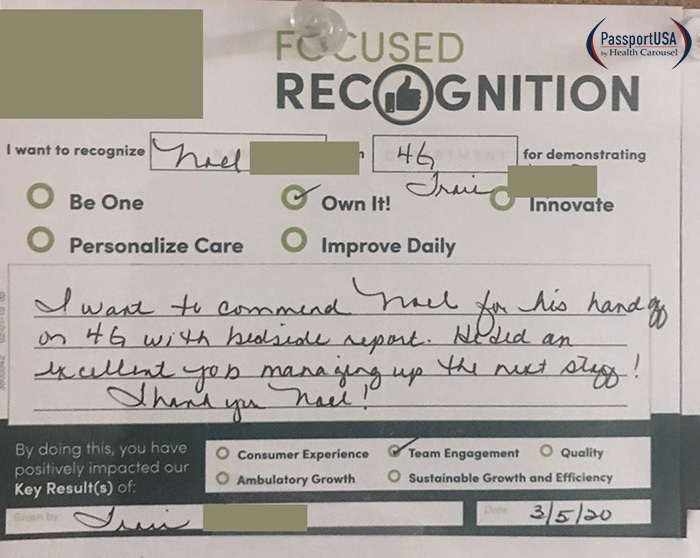 PassportUSA
by Health Carousel
FOCUSED
RECOGNITION
I want to recognize Noel 4G for demonstrating
Be One Own It! Innovate
Personalize Care Improve Daily
I want to commend Noel for his hand off
on 4G with bedside report. He did an
excellent job managing up the next staff!
Thank you Noel!
By doing this, you have
positively impacted our
Key Result(s) of:
Consumer Experience Team Engagement Quality
Ambulatory Growth Sustainable Growth and Efficiency
Given by Date 3/5/20